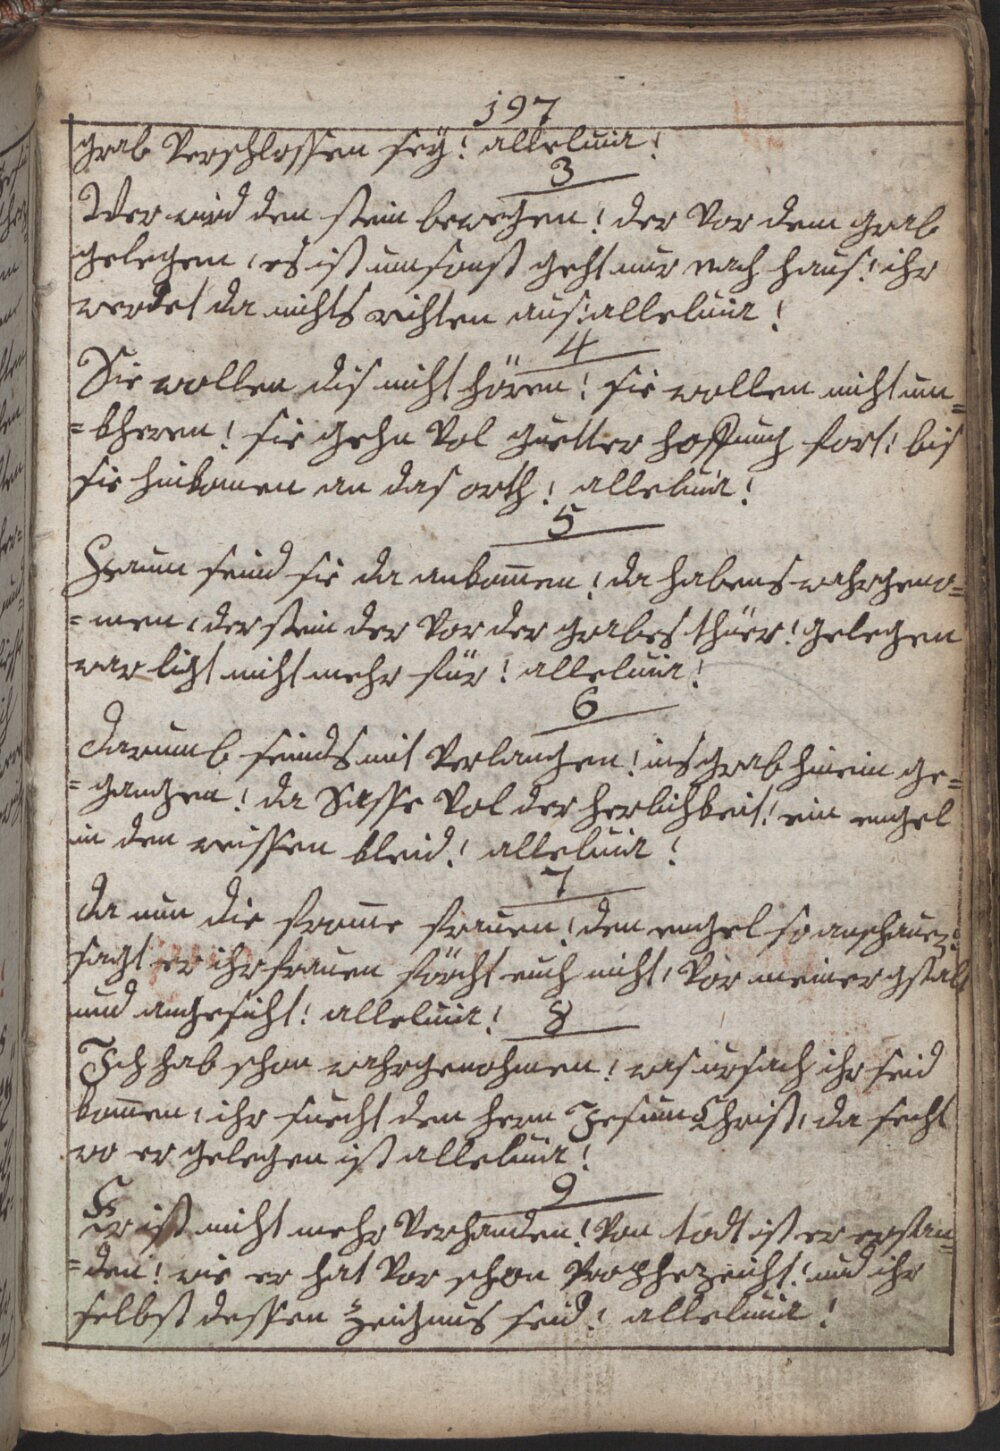 197
grab Verschlossen seÿ! alleluia!
3
Wer wird den stein bewegen! der Vor dem grab
gelegen, es ist umsonst geht nur nach haus! ihr
werdet da nichts richten aus: alleluia!
4
Sie wollen dis nicht hören! sie wollen nicht um=
=kheren! sie gehn Vol guetter hoffnung fort! bis
sie hinkomen an das orth! alleluia!
5
kaum seind sie da ankom̄en! da habens wahrgeno=
=men, der stein der Vor der grabes thüer! gelegen
war ligt nicht mehr für! alleluia!
6
darumb seinds mit Verlangen! ins grab hinein ge=
=gangen! da Sasse Vol der herlichkeit! ein engel
in den weissen kleid! alleluia!
7
da nun die from̄e frauen! den engel so anschauen!
sagt er ihr frauen förcht euch nicht, Vor meiner gstalt
und angesicht! alleluia!
8
Ich hab schon wahrgenohmen! was ursach ihr seid
kom̄en, ihr suecht den hern Jesum Christ, da secht
wo er gelegen ist alleluia!
9
Er ist nicht mehr Verhanden! Von todt ist er erstan=
=den! wie er hat Vor schon Prophezeicht! und ihr
selbst dessen zeichnus seid! alleluia!